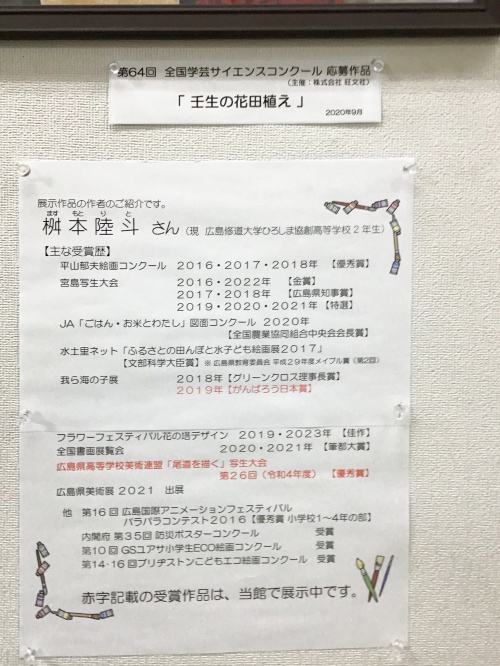 第64回 全国学芸サイエンスコンクール 応募作品
(主催：株式会社 旺文社)
「 壬生の花田植え 」
2020年9月
展示作品の作者のご紹介です。
ます もと り と
桝本陸斗 さん (現 広島修道大学ひろしま協創高等学校2年生)
【主な受賞歴】
平山郁夫絵画コンクール 2016・2017・2018年 【優秀賞】
宮島写生大会 2016・2022年 【金賞】
2017・2018年 【広島県知事賞】
2019・2020・2021年 【特選】
JA「ごはん・お米とわたし」図画コンクール 2020年
【全国農業協同組合中央会会長賞】
水土里ネット「ふるさとの田んぼと水子ども絵画展2017」
【文部科学大臣賞】※ 広島県教育委員会 平成29年度メイプル賞（第2回）
我ら海の子展 2018年【グリーンクロス理事長賞】
2019年【がんばろう日本賞】
フラワーフェスティバル花の塔デザイン 2019・2023年 【佳作】
全国書画展覧会 2020・2021年 【筆都大賞】
広島県高等学校美術連盟「尾道を描く」写生大会
第26回（令和4年度） 【優秀賞】
広島県美術展 2021 出展
他 第16回 広島国際アニメーションフェスティバル
パラパラコンテスト2016【優秀賞 小学校1～4年の部】
内閣府 第35回 防災ポスターコンクール 受賞
第10回 GSユアサ小学生ECO絵画コンクール 受賞
第14・16回ブリヂストンこどもエコ絵画コンクール 受賞
赤字記載の受賞作品は、当館で展示中です。